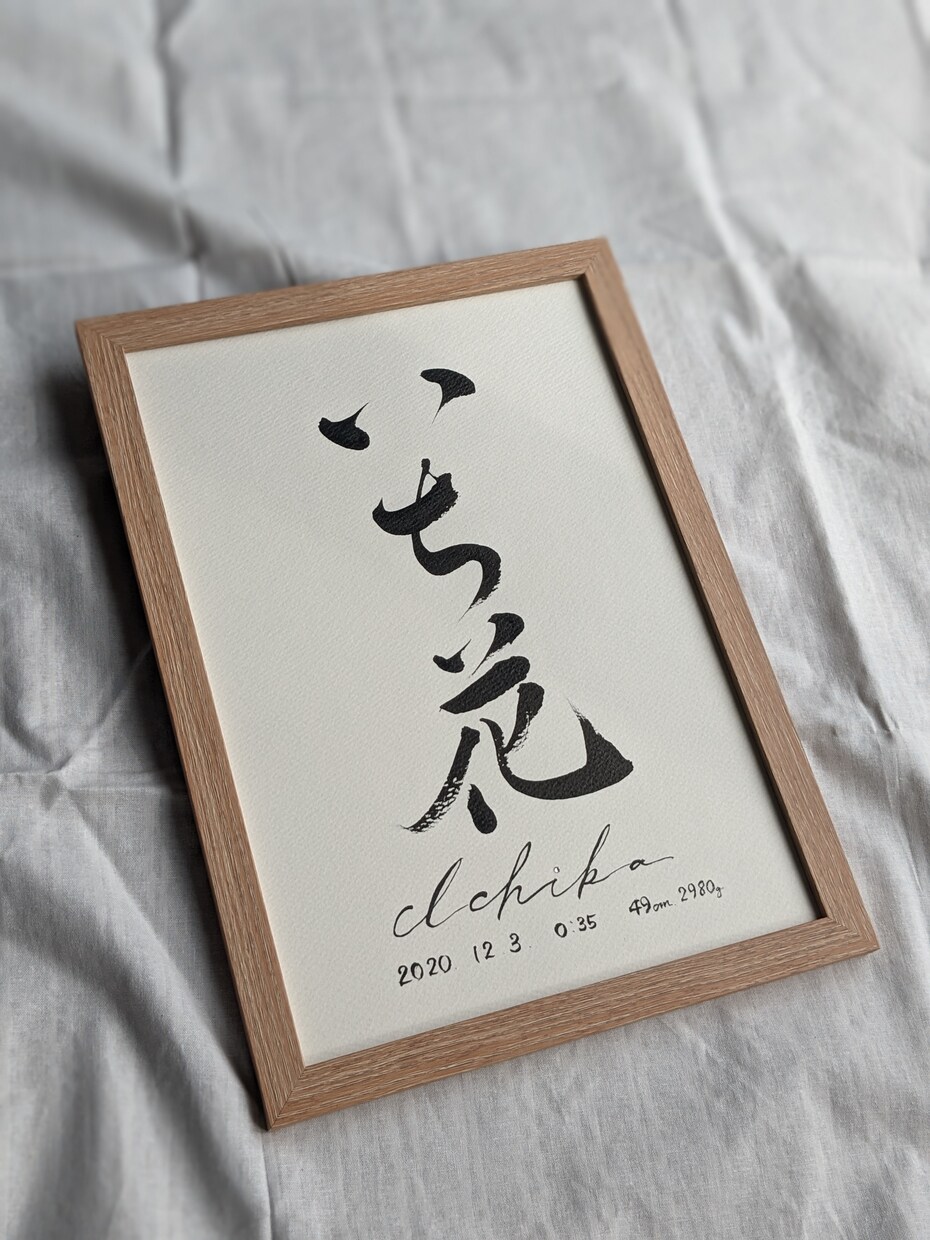 いち花
Ichika
2020. 12 3. 0:35 49cm. 2980g